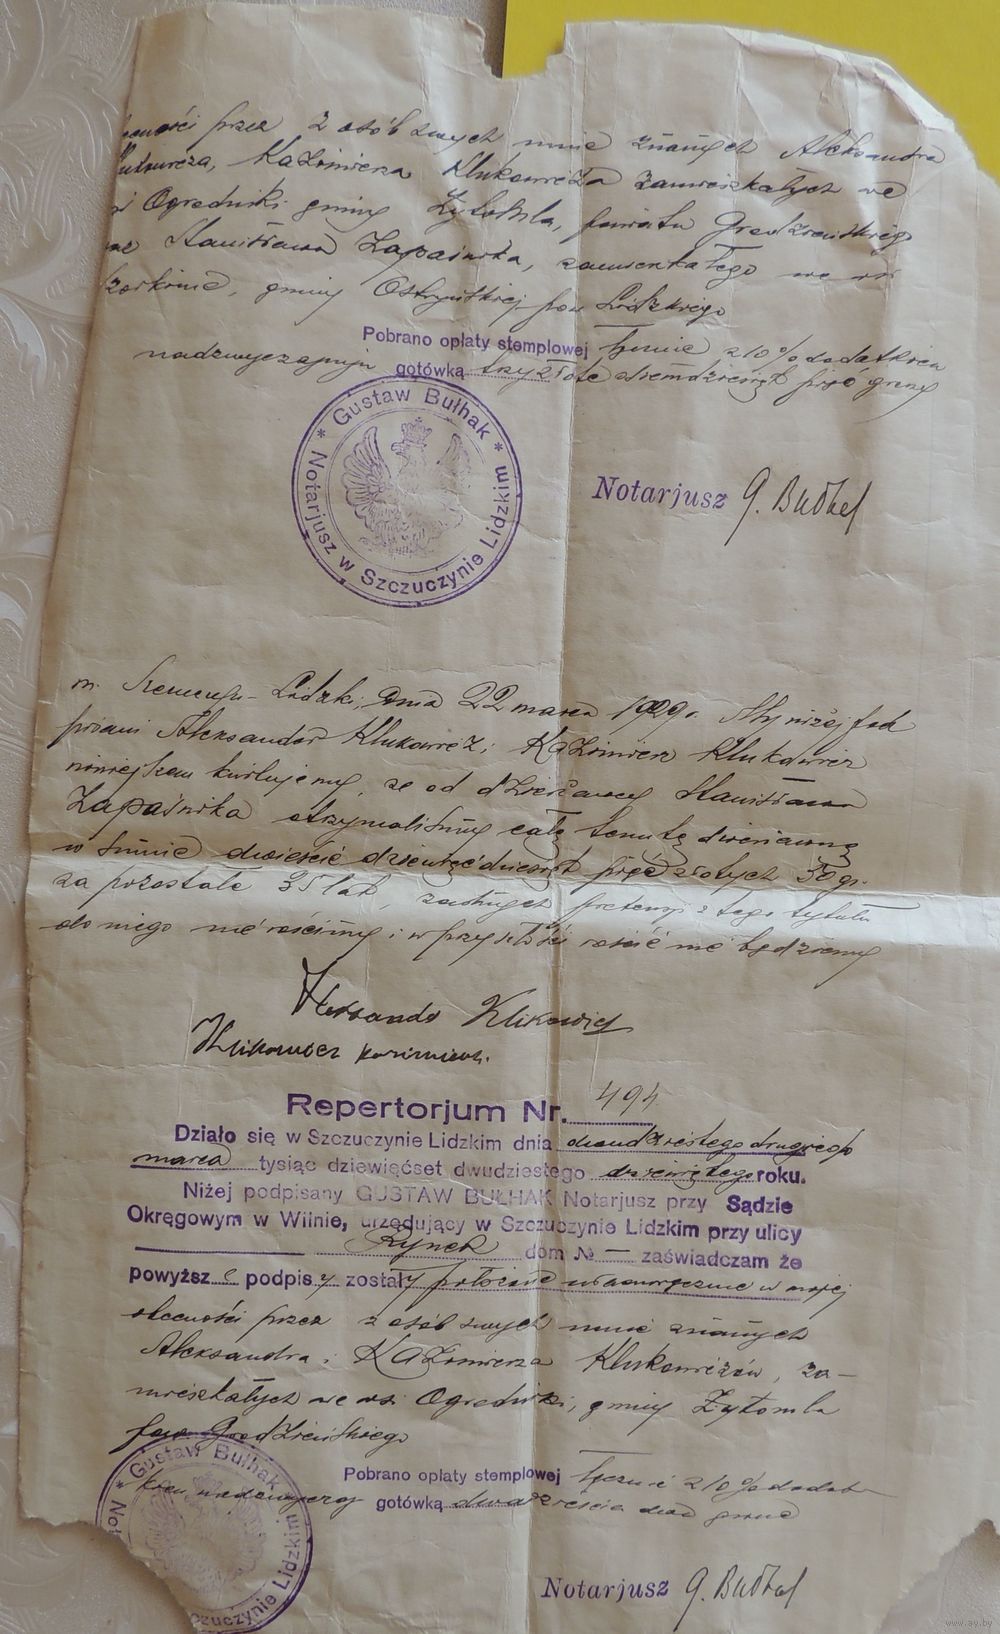 przez z osób swych mnie znanych Aleksandra
Kazimierza Klukowicza zamieszkałych we
Ogrodniki gminy Żytomla, powiatu Grodzieńskiego
Stanisława Zapaśnika, zamieszkałego we wsi
gminy Ostryńskiej pow Lidzkiego
Pobrano opłaty stemplowej łącznie z 10% dodatkiem
nadzwyczajnym gotówką trzy złote osiemdziesiąt pięć groszy
* Gustaw Bułhak *
Notarjusz w Szczuczynie Lidzkim
Notarjusz G. Bułhak
m. Lidzki, dnia 22 marca 1929 r. My niżej pod
pisani Aleksander Klukowicz i Kazimierz Klukowicz
niniejszem kwitujemy, że od dzierżawcy Stanisława
Zapaśnika otrzymaliśmy całą tenutę dzierżawną
w sumie dwieście dziewięćdziesiąt pięć złotych 50 gr.
za pozostałe 35 lat, żadnych pretensji z tego tytułu
do niego nie rościmy i w przyszłości rościć nie będziemy
Klukowicz
Repertorjum Nr. 494
Działo się w Szczuczynie Lidzkim dnia dwudziestego drugiego
marca tysiąc dziewięćset dwudziestego dziewiątego roku.
Niżej podpisany GUSTAW BUŁHAK Notarjusz przy Sądzie
Okręgowym w Wilnie, urzędujący w Szczuczynie Lidzkim przy ulicy
Rynek dom № — zaświadczam że
powyższe podpisy zostały położone własnoręcznie w mojej
obecności przez z osób swych mnie znanych
Aleksandra i Kazimierza Klukowiczów, za-
mieszkałych we wsi Ogrodniki, gminy Żytomla
pow. Grodzieńskiego
Pobrano opłaty stemplowej łącznie z 10% dodat-
kiem nadzwyczaj gotówką dwadzieścia dwa grosze
* Gustaw Bułhak
Szczuczynie Lidzkim
Notarjusz G. Bułhak
www.ay.by